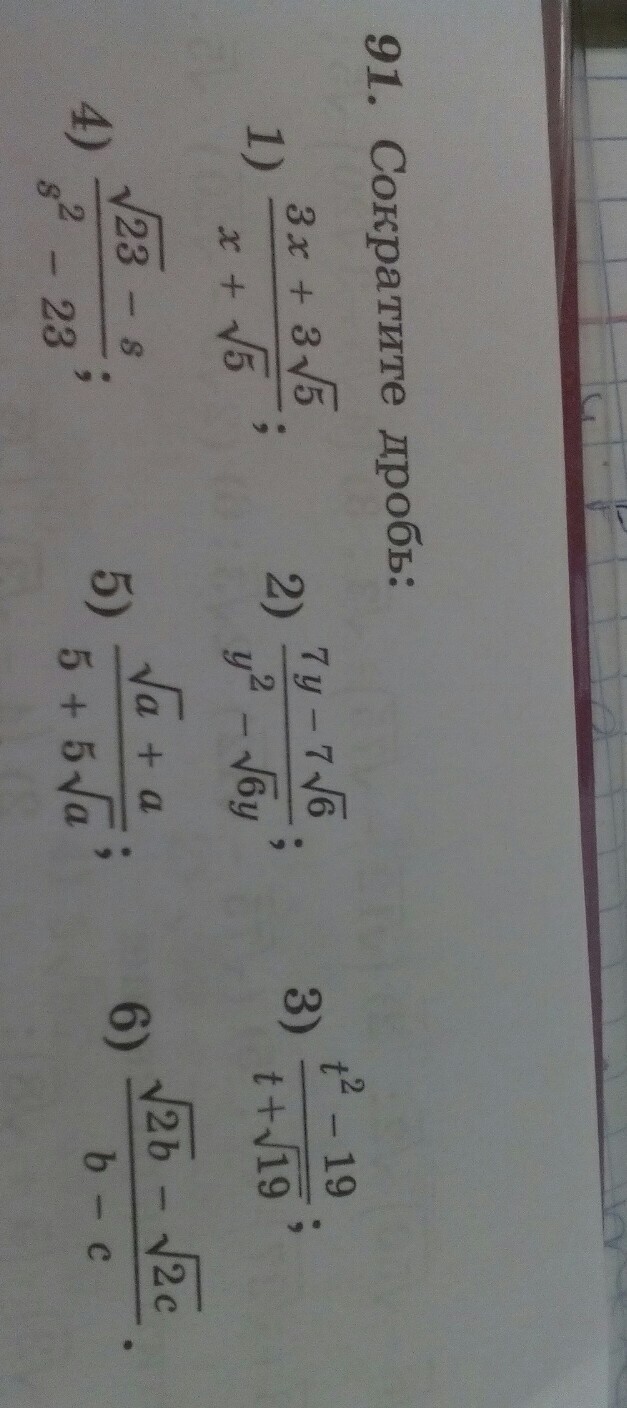 91. Сократите дробь:
1) (3x + 3√5)/(x + √5); 2) (7y − 7√6)/(y² − √6y); 3) (t² − 19)/(t + √19);
4) (√23 − s)/(s² − 23); 5) (√a + a)/(5 + 5√a); 6) (√2b − √2c)/(b − c).